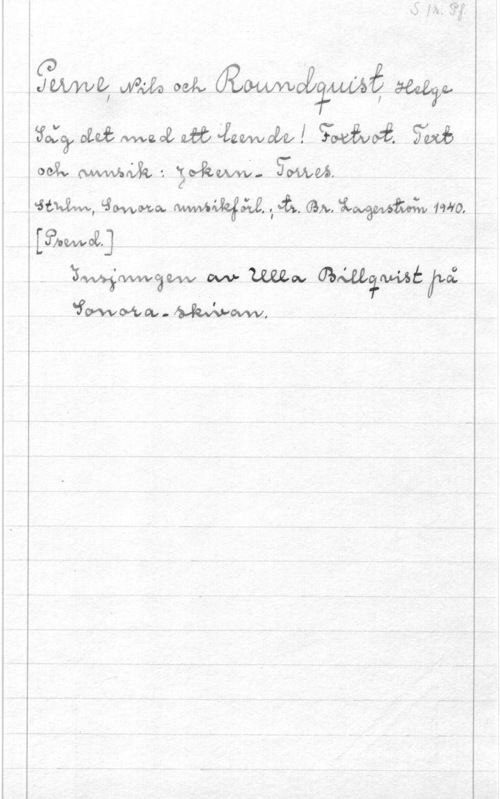 S /n. Pf.
Perne, Nils och Roundquist, Helge
Säg det med ett leende! Foxtrot. Text
och musik: Jokern - Torres.
Sthlm, Sonora musikförl.; tr. Br. Lagerström 1940.
[Pseud.]
Insjungen av Ulla Billquist på
Sonora-skivan.